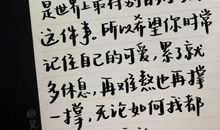 是世界上最
这件事。所以希望你时常
记住自己的可爱，累了就
多休息，再难熬也再撑
一撑，无论如何我都